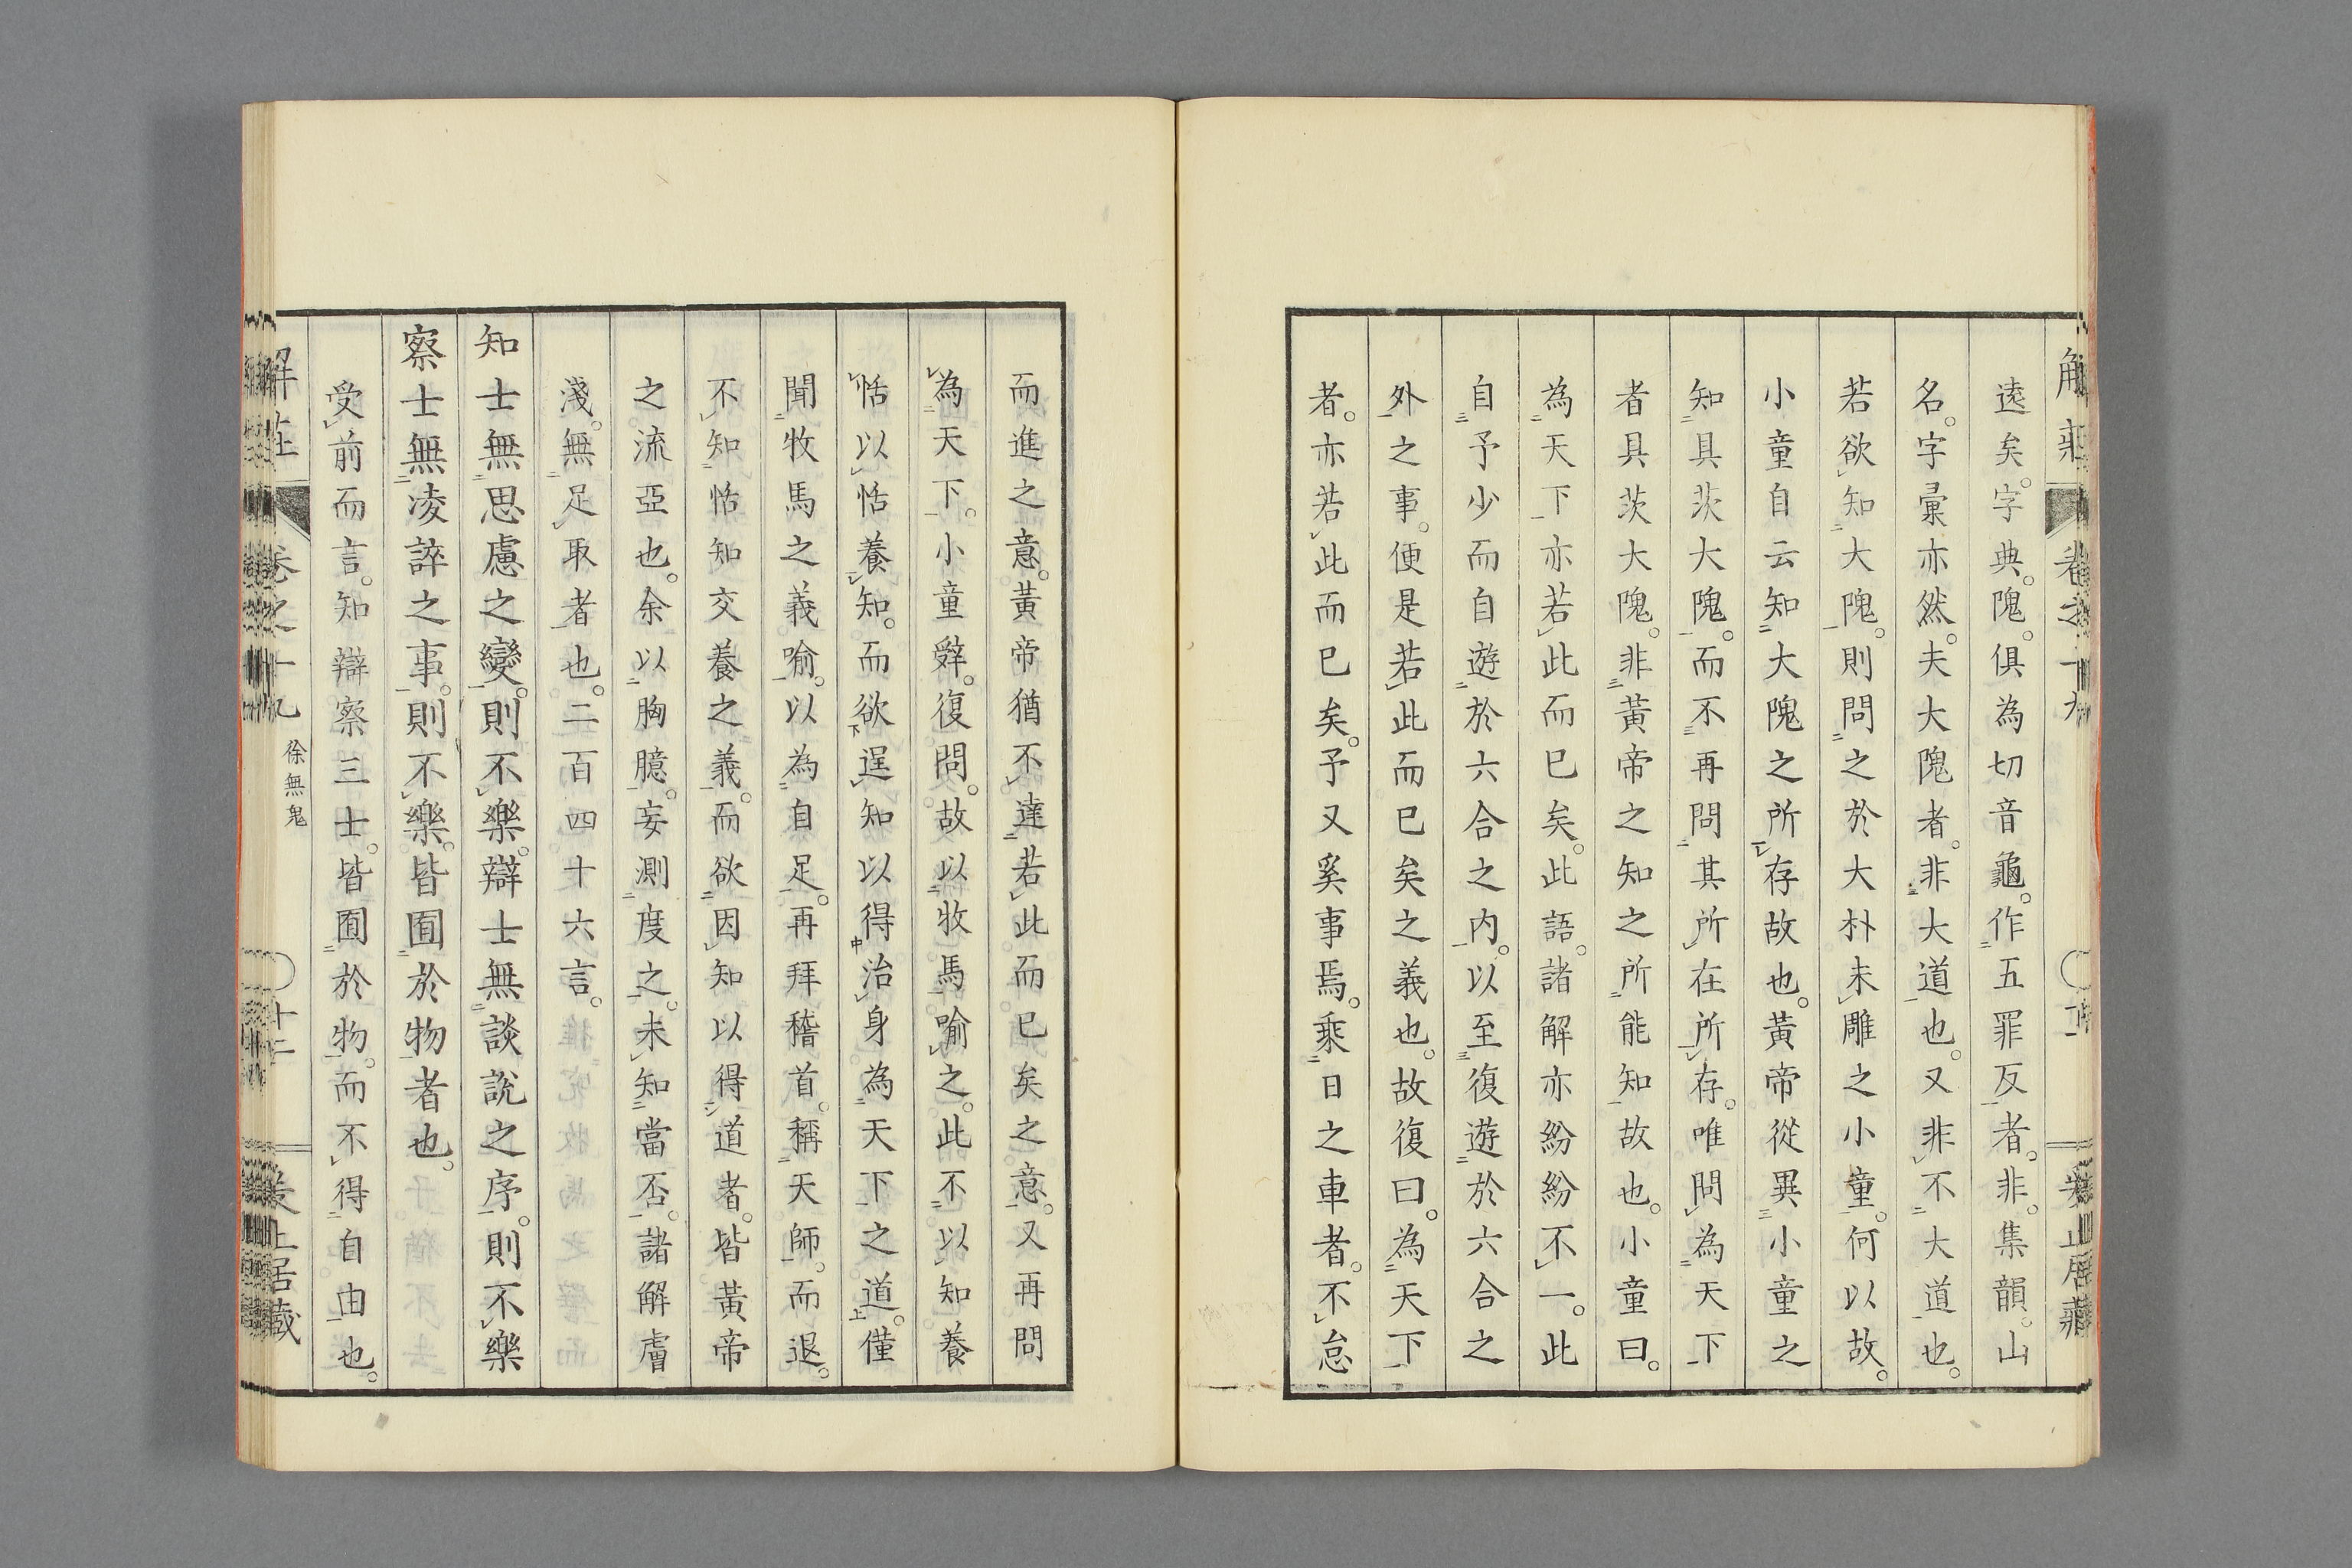 遠矣。字典。隗。俱為切音龜。作五罪反者。非。集韻。山
名。字彙亦然。夫大隗者。非大道也。又非不大道也。
若欲知大隗。則問之於大朴未雕之小童。何以故。
小童自云知大隗之所存故也。黃帝從異小童之
知具茨大隗。而不再問其所在所存。唯問為天下
者具茨大隗。非黃帝之知之所能知故也。小童曰。
為天下亦若此而已矣。此語。諸解亦紛紛不一。此
自予少而自遊於六合之內。以至復遊於六合之
外之事。便是若此而已矣之義也。故復曰。為天下
者。亦若此而已矣。予又奚事焉。乘日之車者。不怠
而進之意。黃帝猶不達若此而已矣之意。又再問
為天下。小童辭。復問。故以牧馬喻之。此不以知養
恬以恬養知。而欲逞知以得治身為天下之道。僅
聞牧馬之義喻。以為自足。再拜稽首。稱天師。而退。
不知恬知交養之義。而欲因知以得道者。皆黃帝
之流亞也。余以胸臆。妄測度之。未知當否。諸解膚
淺。無足取者也。二百四十六言。
知士無思慮之變。則不樂。辯士無談說之序。則不樂
察士無凌誶之事。則不樂。皆囿於物者也。
受前而言。知辯察三士。皆囿於物。而不得自由也。
解莊 卷之十九 徐無鬼 十二